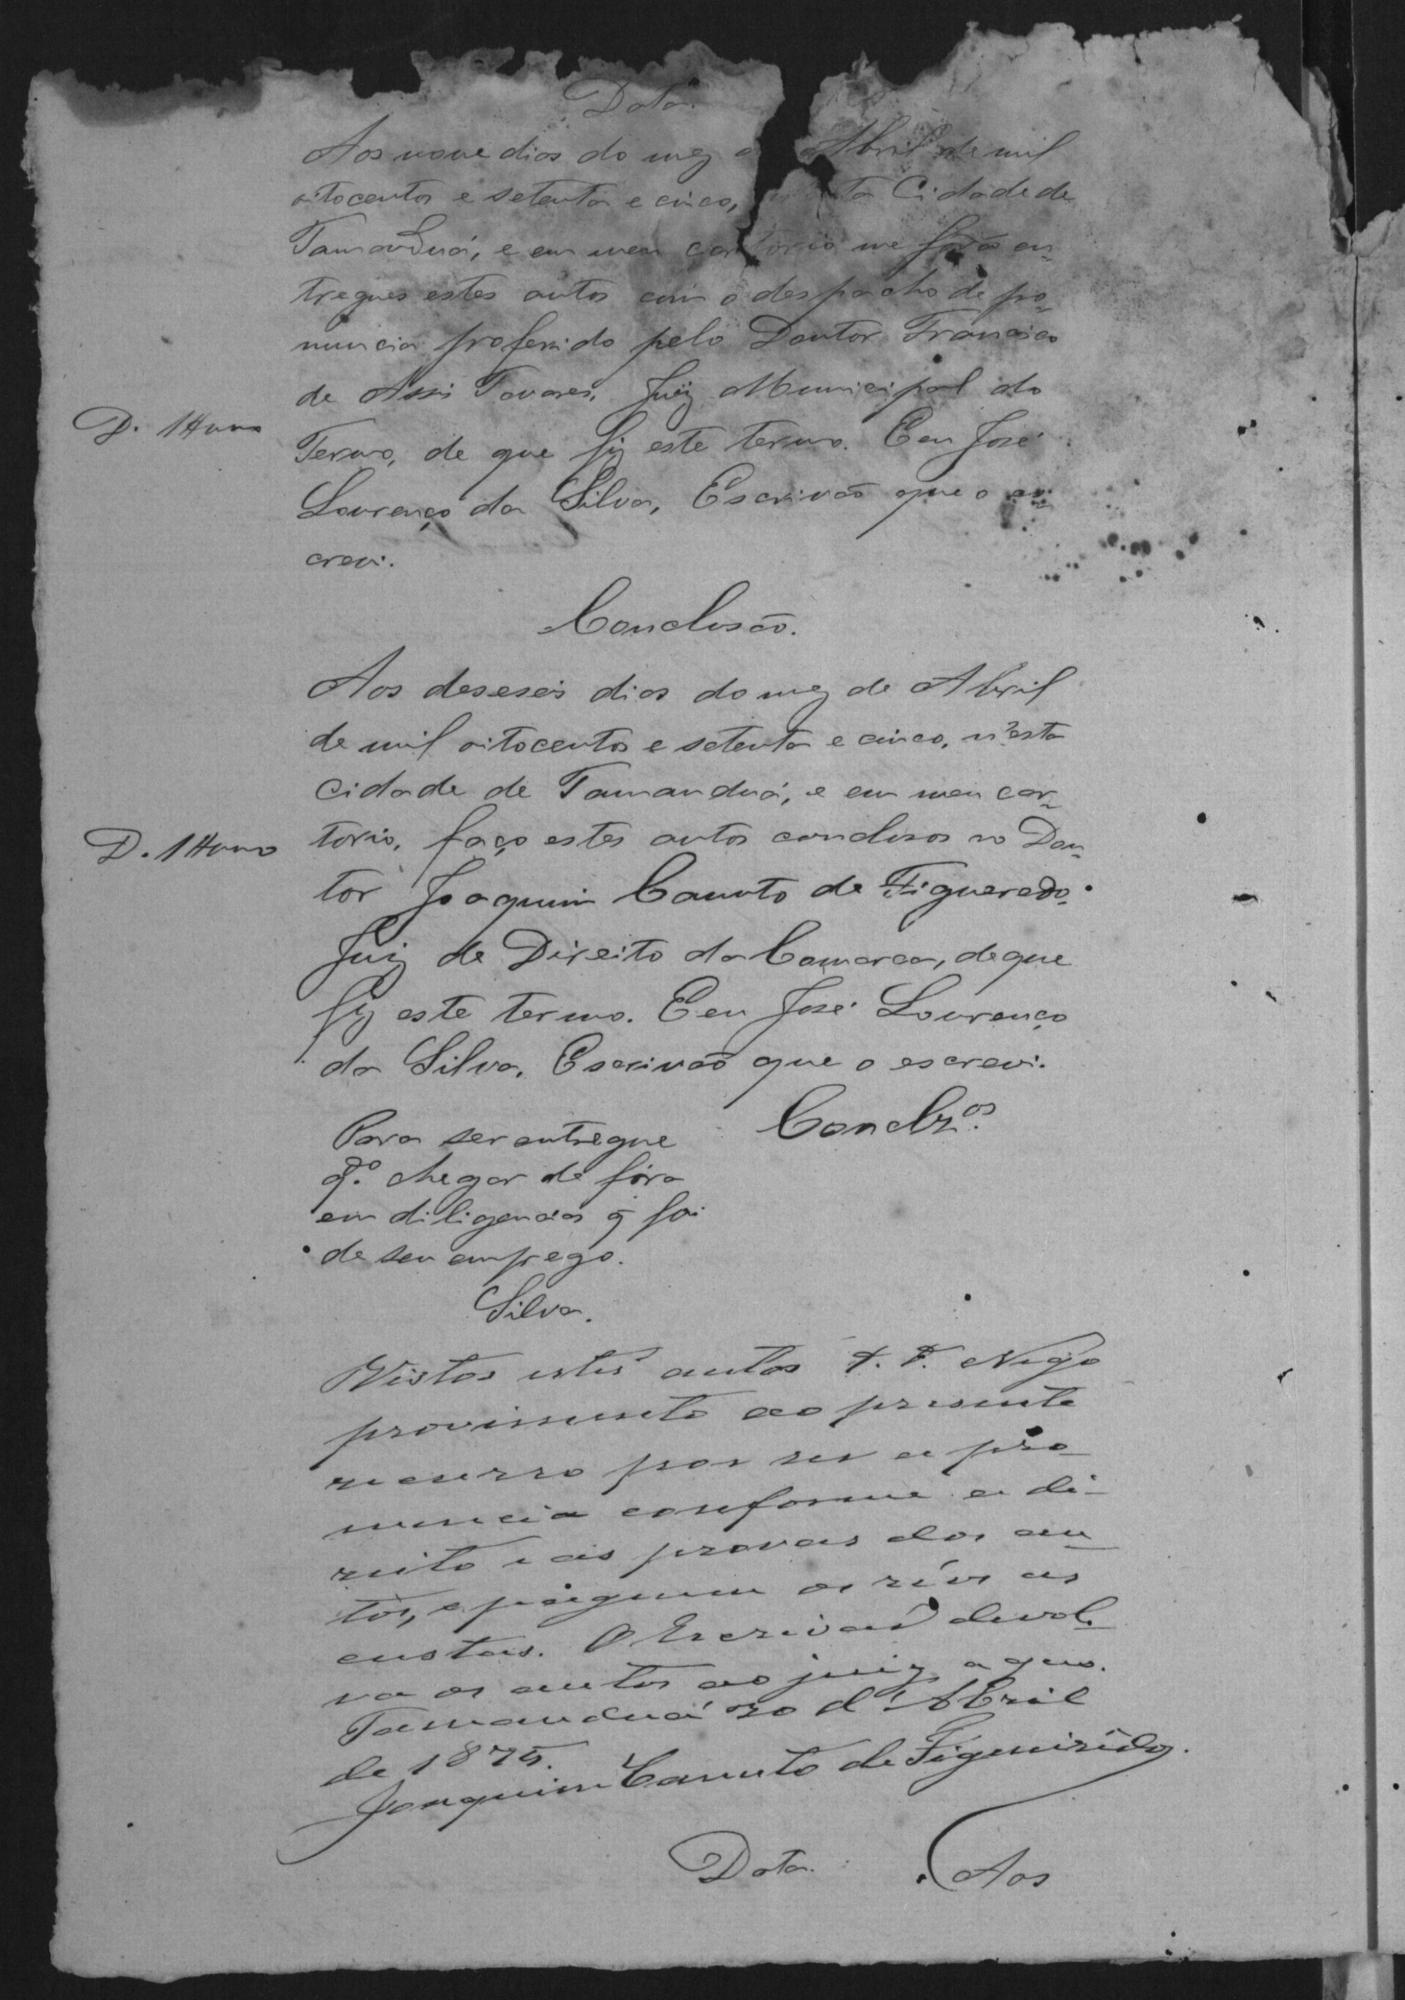 Data.
Aos nove dias do mez de Abril de mil
oitocentos e setenta e cinco, nesta Cidade de
Tamanduá, e em meu cartorio me forão en-
tregues estes autos com o despacho de pro-
nuncia proferido pelo Doutor Francisco
de Assis Tavares, Juiz Municipal do
D.
Termo, de que fiz este termo. E eu José
Lourenço da Silva, Escrivão que o es-
crevi.
Conclusão.
Aos deseseis dias do mez de Abril
de mil oitocentos e setenta e cinco, n'esta
cidade de Tamanduá, e em meu car-
D.
torio, faço estes autos conclusos ao Dou-
tor Joaquim Canuto de Figueredo.
Juiz de Direito da Comarca, de que
fiz este termo. E eu José Lourenço
da Silva, Escrivão que o escrevi.
Conclz.os
Para ser entregue
q.do chegar de fóra
em diligencias q̃ foi
de seu emprego.
Silva.
Vistos estes autos &. &. Nego
provimento ao presente
recurso por ser a pro-
nuncia conforme a di-
reito e as provas dos au-
tos, e paguem os réos as
custas. O Escrivaõ devol-
va os autos ao juiz a quo.
Tamanduá 20 d'Abril
de 1875.
Joaquim Canuto de Figueirêdo.
Data.
Aos